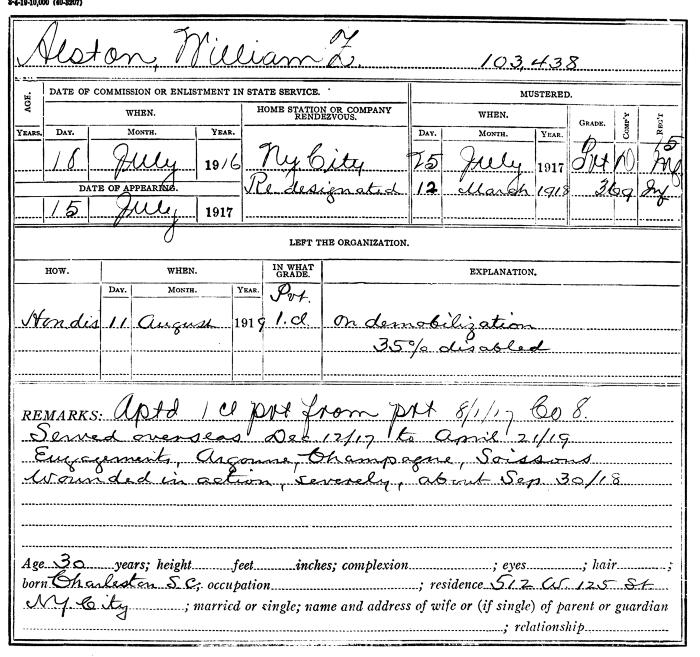 8-4-19-10,000 (40-3207)
Alston, William Z. 103,438
AGE. DATE OF COMMISSION OR ENLISTMENT IN STATE SERVICE. MUSTERED.
WHEN. HOME STATION OR COMPANY RENDEZVOUS. WHEN. GRADE. COMP'Y REG'T
YEARS. DAY. MONTH. YEAR. DAY. MONTH. YEAR.
18 July 1916 NY City 25 July 1917 Pvt D 15 Inf
DATE OF APPEARING. Redesignated 12 March 1918 369 Inf
15 July 1917
LEFT THE ORGANIZATION.
HOW. WHEN. IN WHAT GRADE. EXPLANATION.
DAY. MONTH. YEAR.
Hon dis 11 August 1919 Pvt. 1.cl On demobilization
35% disabled
REMARKS: Aptd 1 cl pvt from pvt 8/1/17 Co 8.
Served overseas Dec 12/17 to April 21/19
Engagements, Argonne, Champagne, Soissons
Wounded in action, severely, about Sep 30/18
Age 30 years; height feet inches; complexion ; eyes ; hair ;
born Charleston S.C. occupation ; residence 512 W. 125 St
NY City ; married or single; name and address of wife or (if single) of parent or guardian
; relationship